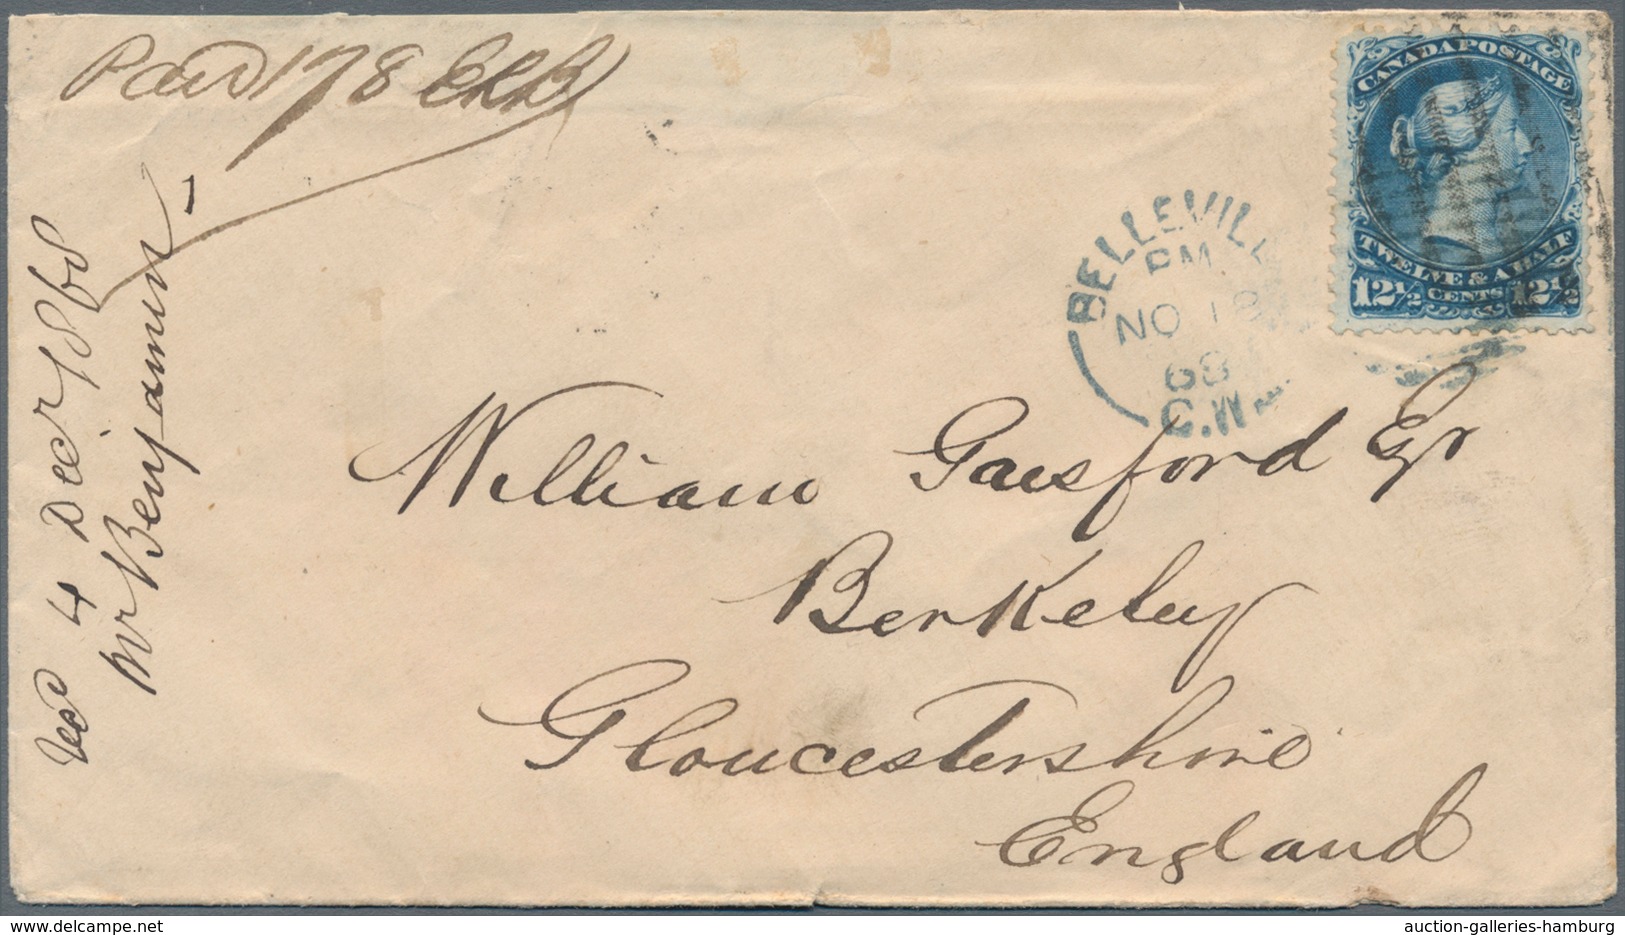 Paid 178
Rec 4 Decr 1868
Mr Benjamin
CANADA POSTAGE
TWELVE & A HALF
12½ CENTS 12½
BELLEVILLE
PM
NO 18
68
C.W.
William Gaisford Esqr
Berkeley
Gloucestershire
England
auction-galleries-hamburg